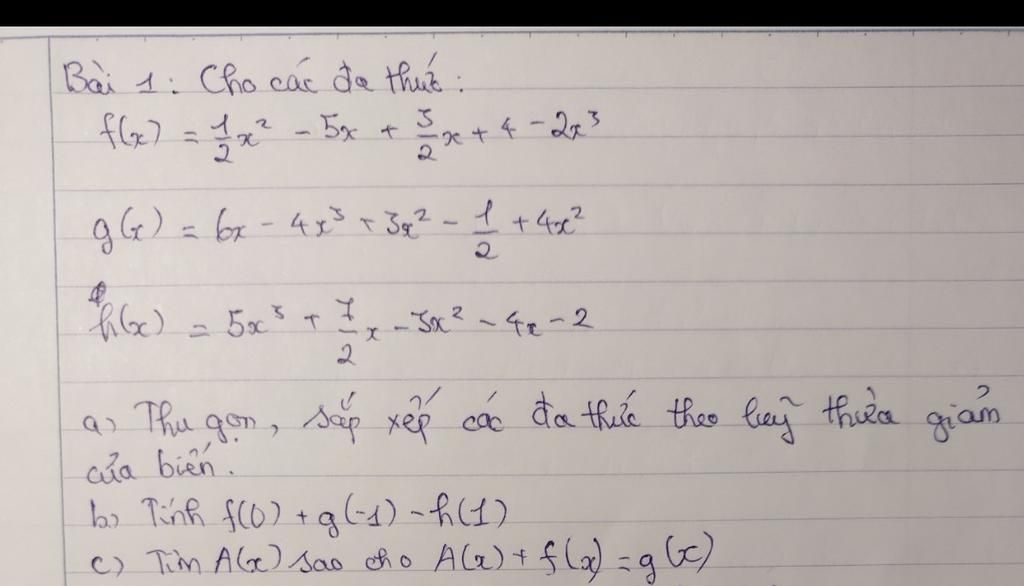 Bài 1: Cho các đa thức:
f(x) = 1/2 x² - 5x + 3/2 x + 4 - 2x³
g(x) = 6x - 4x³ + 3x² - 1/2 + 4x²
h(x) = 5x³ + 7/2 x - 3x² - 4x - 2
a) Thu gọn, sắp xếp các đa thức theo luỹ thừa giảm
của biến.
b) Tính f(0) + g(-1) - h(1)
c) Tìm A(x) sao cho A(x) + f(x) = g(x)